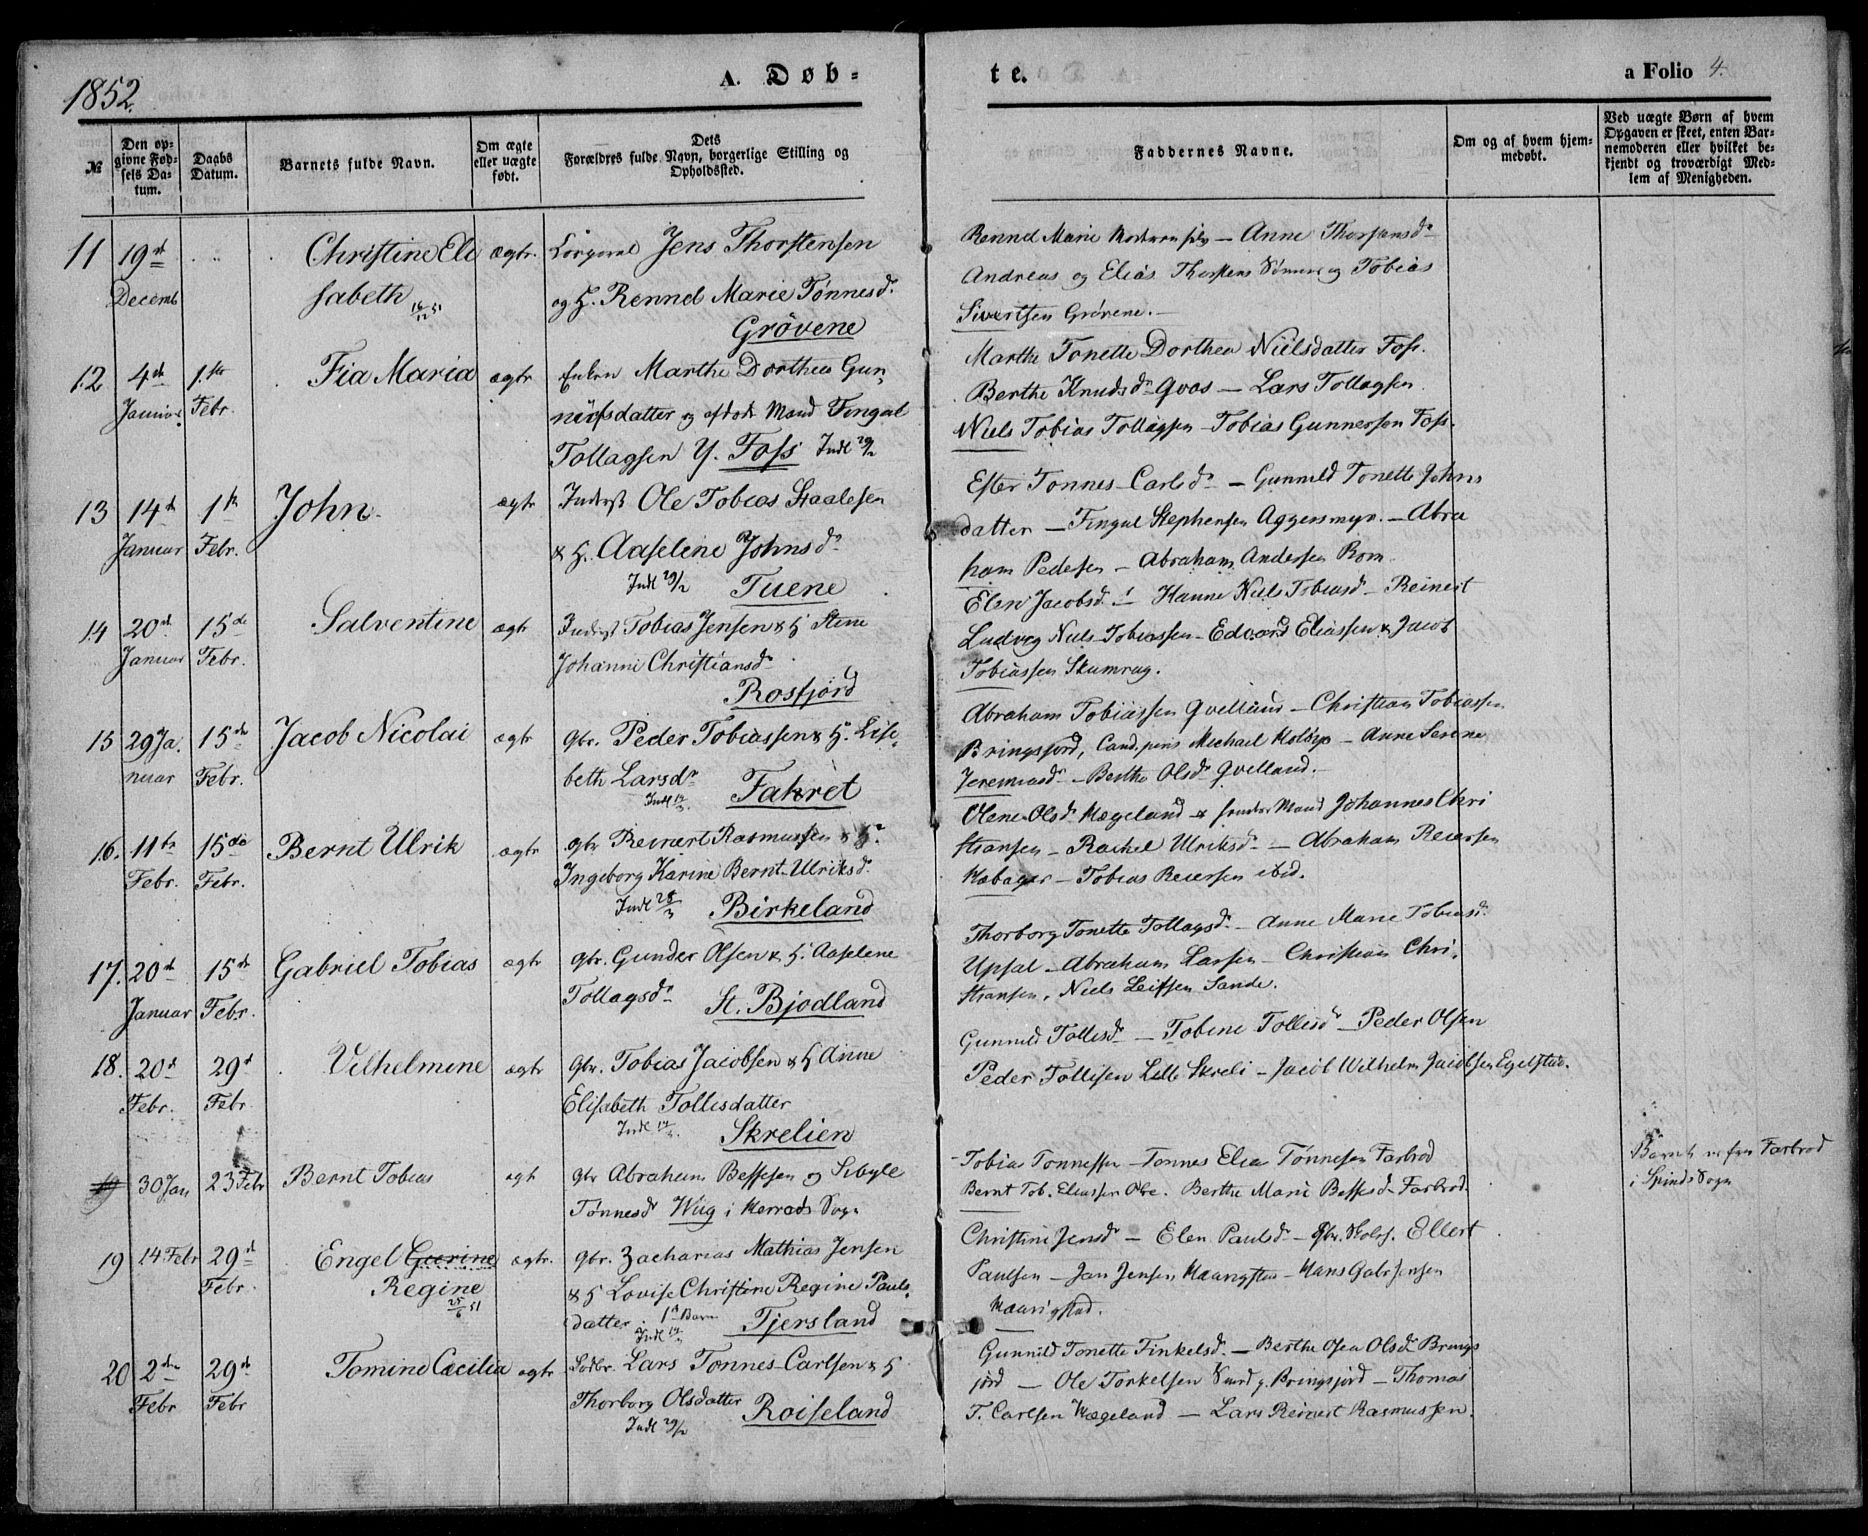 1852.
A. Døb-
te.
a Folio 4.
№
Den opgivne Fødsels Datum.
Daabs Datum.
Barnets fulde Navn.
Om ægte eller uægte født.
Dets Forældres fulde Navn, borgerlige Stilling og Opholdssted.
Faddernes Navne.
Om og af hvem hjemmedøbt.
Ved uægte Børn af hvem Opgaven er skeet, enten Barnemoderen eller hvilket bekjendt og troværdigt Medlem af Menigheden.
11 19de Decemb Christine Eli
sabeth 16/12 51
ægte. Jens Thorstensen
og H. Rennel Marie Tønnesd.
Grövene
Rennel Marie — Anne Thorsensdr
Andreas og Elias Thorstens Sönner og Tobias
Sivertsen Grövene.
12 4de Januar 1ste Febr. Fia Maria ægte
Enken Marthe Dorthea Gun
nersdatter og afdöde Mand Fingal
Tollagsen Y. Foss Indl 29/2
Marthe Tonette Dorthea Nielsdatter Foss.
Berthe Knudsdr Qvos — Lars Tollagsen
Niels Tobias Tollagsen - Tobias Gunnersen Foss.
13 14de Januar 1ste Febr. John ægte
Inderst Ole Tobias Staalesen
& H. Aaselene Johnsdr
Indl 29/2 Tuene
Ester Tonnes-Carlsdr — Gunnild Tonette Johns
datter — Fingal Stephensen Aggersmyr. — Abra
ham Pedersen — Abraham Andersen Rom
14 20de Januar 15de Febr. Salventine ægte
Inderst Tobias Jensen & H Stine
Johanne Christiansdr
Rosfjord
Elen Jacobsd. — Hanne Niels Tobiasd — Reinert
Ludvig Niels-Tobiassen - Edvard Eliassen & Jacob
Tobiassen Skumrag.
15 29 Januar 15de Febr. Jacob Nicolai ægte
gbr. Peder Tobiassen & H. Lise
beth Larsdr
Indl 14/3 Fahret
Abraham Tobiassen Qvelland — Christian Tobiassen
Bringsfjord, Michael Holbye — Anne Serene
Jeremiasd — Berthe Olsdr Qvelland.
16. 11te Febr. 15de Febr. Bernt Ulrik ægte
gbr Reinert Rasmussen & H.
Ingeborg Karine Bernt-Ulriksd.
Indl 28/3 Birkeland
Olene Olsdr Hægeland & hendes Mand Johannes Chri
stiansen — Rachel Ulriksd. — Abraham Reiersen
Habager — Tobias Reiersen ibid.
17. 20de Januar 15de Febr. Gabriel Tobias ægte
gbr. Gunder Olsen & H. Aaselene
Tollagsdr St. Bjodland
Thorborg Tonette Tollagsdr — Anne Marie Tobiasd.
Upsal — Abraham Larsen — Christian Chri
stiansen, Niels Leifsen Sande.
18. 20de Febr. 29de Febr. Vilhelmine ægte
gbr. Tobias Jacobsen & H Anne
Elisabeth Tollisdatter
Indl Skrelien
Gunnild Tollisdr — Tobine Tollisd — Peder Olsen
Peder Tollisen Lille Skreli — Jacob Wilhelm Jacobsen Egelstad.
19 30 Jan 23 Febr Bernt Tobias ægt
gbr Abraham Bessesen og Sibyle
Tønnesdr Wug i Herrads Sogn
Tobias Tonnessen — Tonnes Elia Tønnesen Farbrod
Bernt Tob. Eliassen Obe. Berthe Marie Bessesd Farbrod.
Barnet er fra Farbrod
i Spinds Sogn
19 14 Febr 29de Febr. Engel Geerine
Regine 25/6 51
ægte. gbr. Zacharias Mathias Jensen
& H Lovise Christine Regine Pauls
datter. 1ste Barn
Indl 14/3 Tjersland
Christine Jensdr — Elen Paulsdr — Ellert
Paulsen — Jan Jensen Haaugstad — Hans Gabr Jensen
Haarigstad.
20 2den Febr 29de Febr Tomine Cæcilia ægte
Lars Tonnes-Carlsen & H
Thorborg Olsdatter
Indl 29/2 Roiseland
Gunnild Tonette Finkelsd. — Berthe Olsdr Brings
jord — Ole Torkelsen Bringsjord — Thomas
T. Carlsen Hægeland — Lars Reinert Rasmussen.